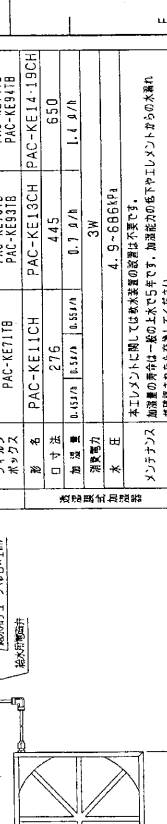 PAC-KE71TB
PAC-KE93TB
PAC-KE94TB
ボックス
形 名 PAC-KE11CH PAC-KE13CH PAC-KE14·19CH
口寸法 276 445 650
加湿量 0.45ℓ/h 0.5ℓ/h 0.55ℓ/h 0.7 ℓ/h 1.4 ℓ/h
消費電力 3W
水 圧 4.9-686kPa
透湿膜式加湿器
本エレメントに関しては軟水装置の設置は不要です。
メンテナンス 加湿量の寿命は一般の上水で5年です。加湿能力の低下やエレメントからの水漏れ
給水用電磁弁